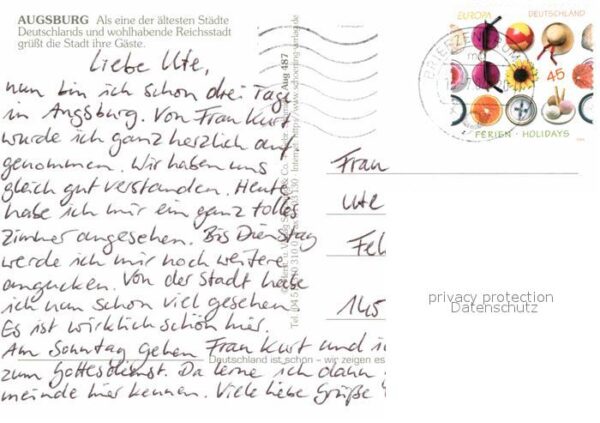 AUGSBURG Als eine der ältesten Städte
Deutschlands und wohlhabende Reichsstadt
grüßt die Stadt ihre Gäste.
Liebe Ute,
nun bin ich schon drei Tage
in Augsburg. Von Frau Kurt
wurde ich ganz herzlich auf
genommen. Wir haben uns
gleich gut verstanden. Heute
habe ich mir ein ganz tolles
Zimmer angesehen. Bis Dienstag
werde ich mir noch weitere
angucken. Von der Stadt habe
ich nun schon viel gesehen
Es ist wirklich schön hier.
Am Sonntag gehen Frau Kurt und i
zum Gottesdienst. Da lerne ich dann
meinde hier kennen. Viele liebe Grüße
Aug 487
Deutschland ist schön - wir zeigen es
EUROPA DEUTSCHLAND
45
FERIEN · HOLIDAYS
BRIEFZENTRUM
Frau
Ute
Fel
145
privacy protection
Datenschutz